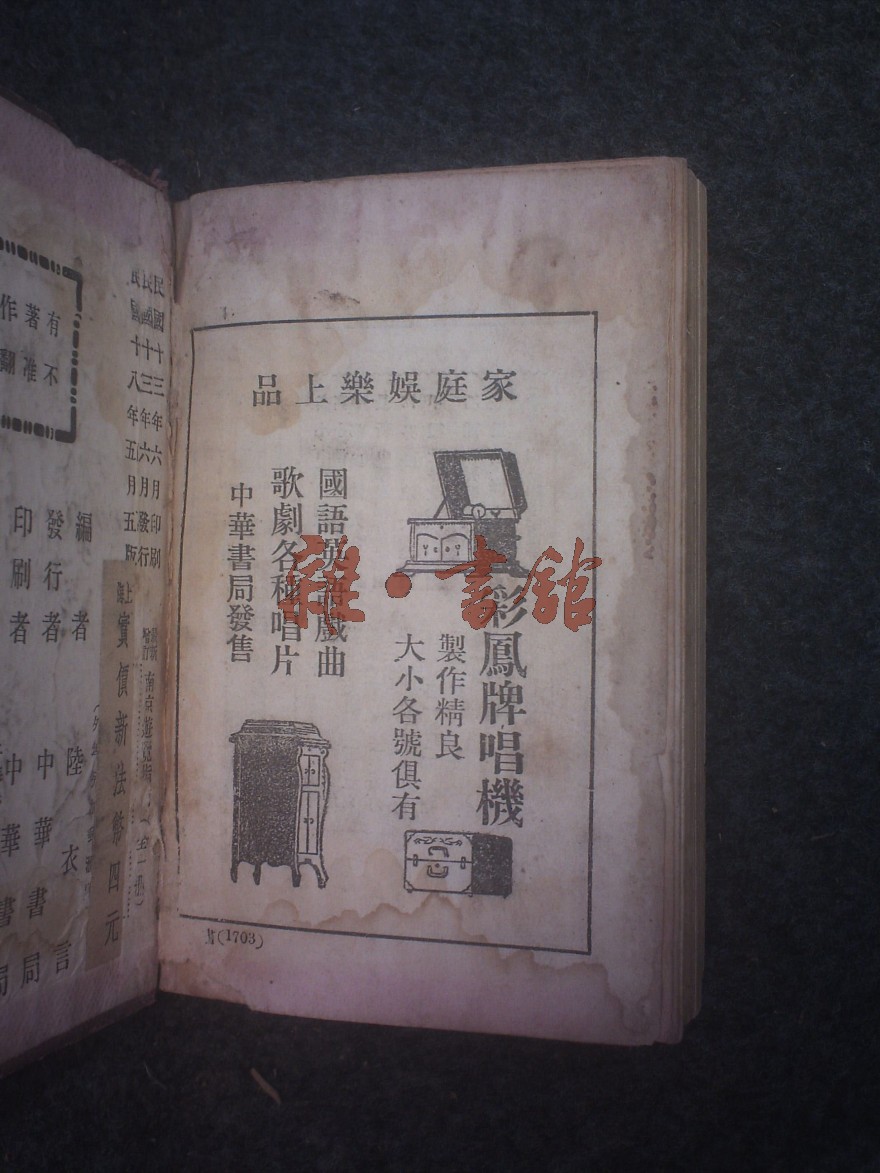 家庭娛樂上品
彩鳳牌唱機
製作精良
大小各號俱有
國語英語戲曲
歌劇各種唱片
中華書局發售
(1703)
雜·書館
有不
著准
作翻
民國十三年六月印刷
民國十三年六月發行
民國十八年五月五版
南京遊覽指
(全一冊)
上海
實價新法幣四元
編者 陸衣言
發行者 中華書局
印刷者 中華書局